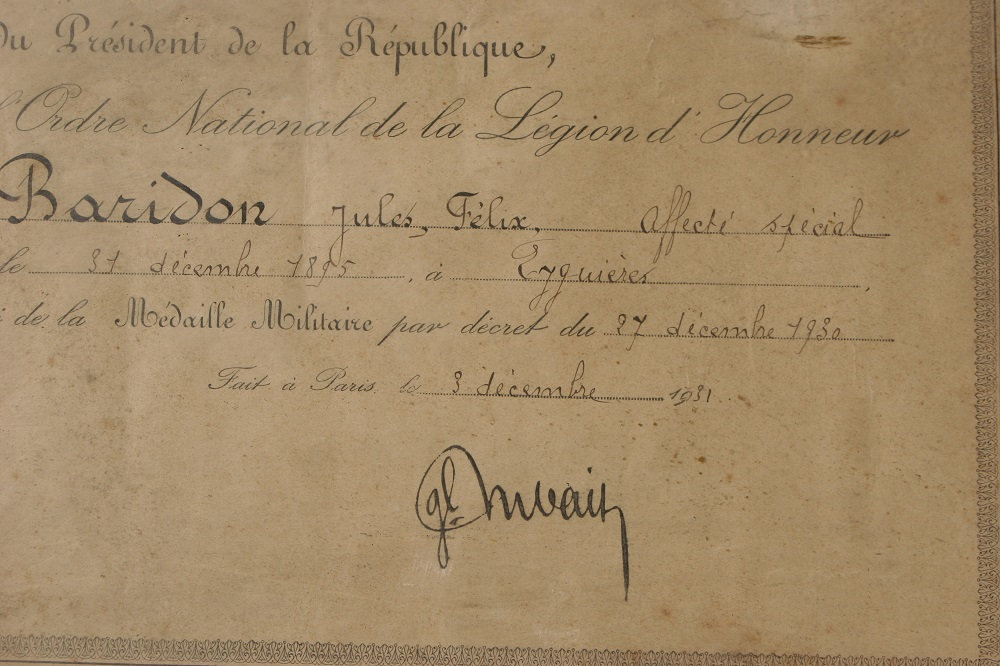 du Président de la République,
l'Ordre National de la Légion d'Honneur
Baridon Jules, Félix, Affecté spécial
le 31 décembre 1895, à Eyguières,
de la Médaille Militaire par décret du 27 décembre 1930
Fait à Paris le 3 décembre 1931.
gl.